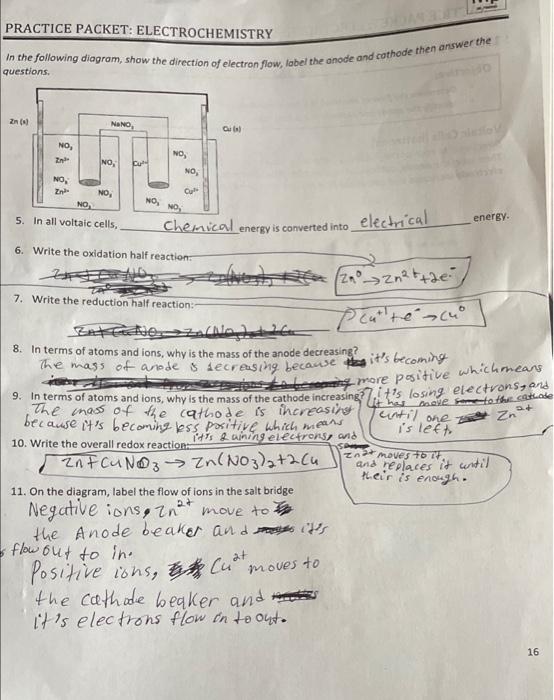 PRACTICE PACKET: ELECTROCHEMISTRY
In the following diagram, show the direction of electron flow, label the anode and cathode then answer the
questions.
Zn (s)
NaNO₃
Cu (s)
NO₃
Zn²⁺
NO₃
Zn²⁺
NO₃
NO₃
NO₃
Cu²⁺
NO₃
NO₃
NO₃
Cu²⁺
NO₃
5. In all voltaic cells, Chemical energy is converted into electrical energy.
6. Write the oxidation half reaction:
Zn⁰ → Zn²⁺ + 2e⁻
7. Write the reduction half reaction:
Cu⁺¹ + e⁻ → Cu⁰
8. In terms of atoms and ions, why is the mass of the anode decreasing?
The mass of anode is decreasing because it's becoming
more positive which means
it's losing electrons, and
it has move to the cathode
until one Zn²⁺
is left.
9. In terms of atoms and ions, why is the mass of the cathode increasing?
The mass of the cathode is increasing
because it's becoming less positive which means
it's gaining electrons, and
Zn²⁺ moves to it,
and replaces it until
their is enough.
10. Write the overall redox reaction:
Zn + CuNO3 → Zn(NO3)2 + 2Cu
11. On the diagram, label the flow of ions in the salt bridge
Negative ions, Zn²⁺ move to
the Anode beaker and it's
flow out to in.
Positive ions, Cu²⁺ moves to
the cathode beaker and
it's electrons flow in to out.
16